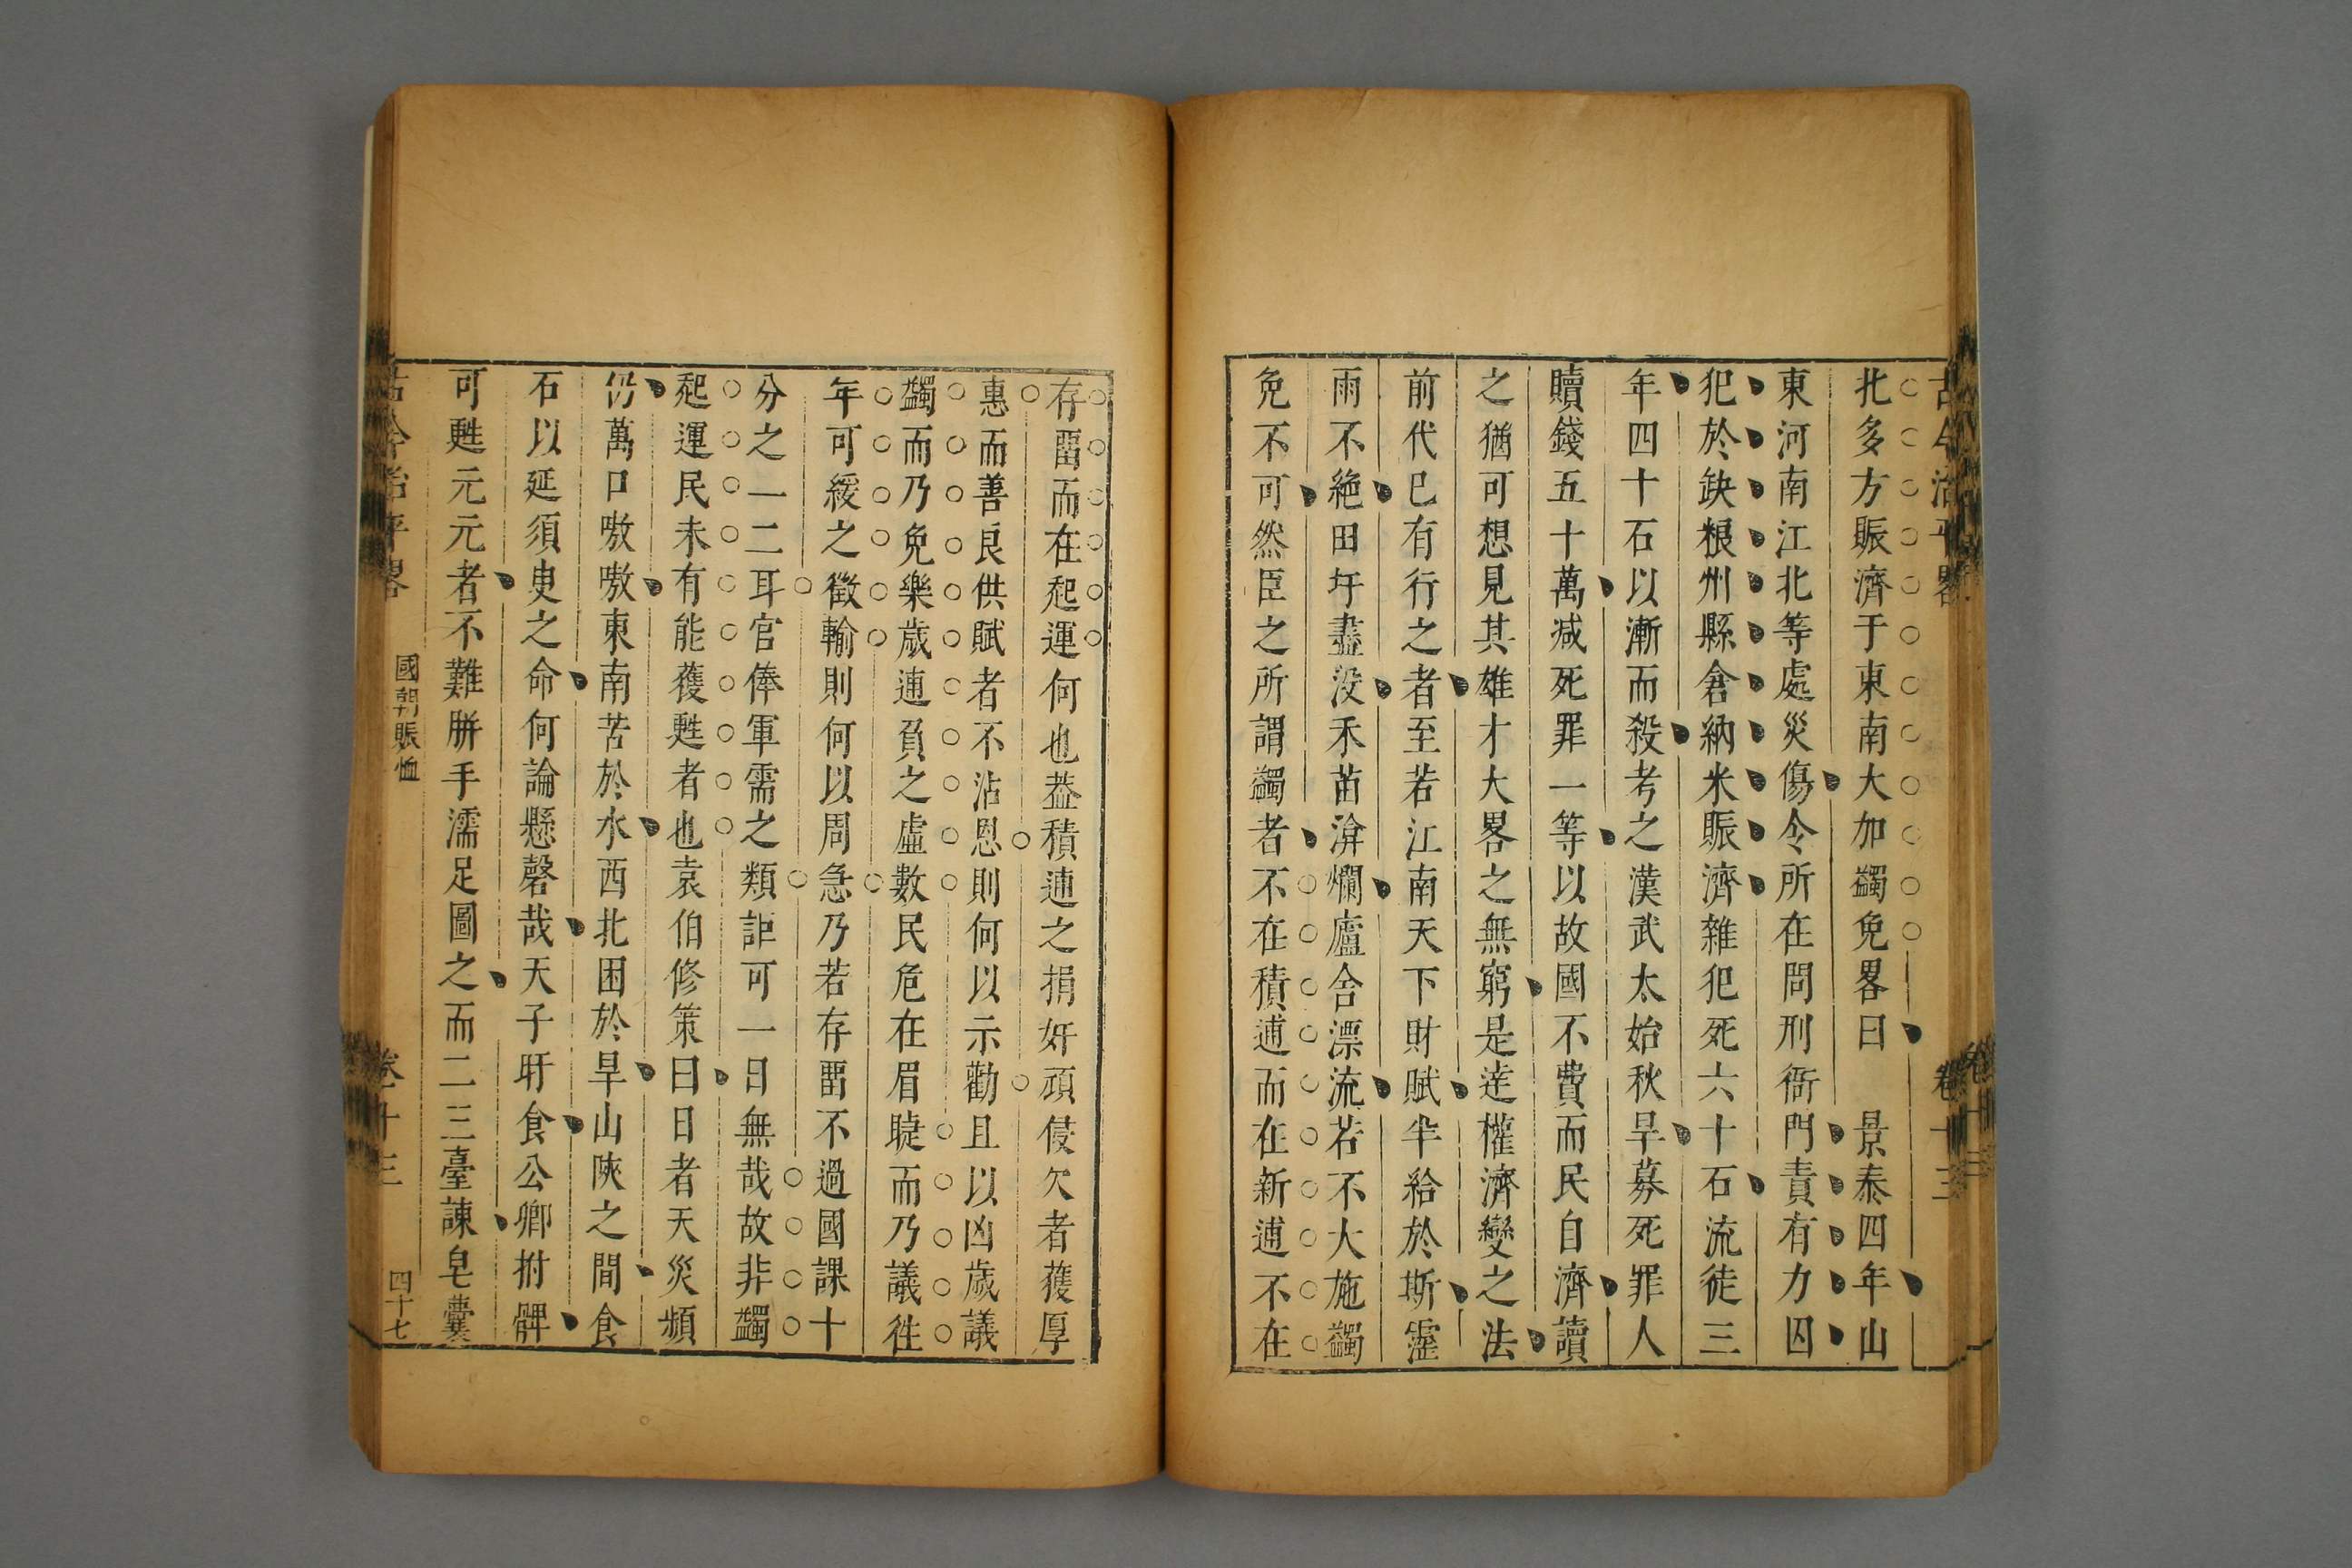 古今治平畧
卷十三
北多方賑濟于東南大加蠲免畧曰　景泰四年山
東河南江北等處災傷令所在問刑衙門責有力囚
犯於缺糧州縣倉納米賑濟雜犯死六十石流徒三
年四十石以漸而殺考之漢武太始秋旱募死罪人
贖錢五十萬减死罪一等以故國不費而民自濟讀
之猶可想見其雄才大畧之無窮是達權濟變之法
前代已有行之者至若江南天下財賦半給於斯霪
雨不絶田圩盡没禾苗渰爛廬舍漂流若不大施蠲
免不可然臣之所謂蠲者不在積逋而在新逋不在
存畱而在起運何也葢積逋之捐奸頑侵欠者獲厚
惠而善良供賦者不沾恩則何以示勸且以凶歲議
蠲而乃免樂歲逋負之虛數民危在眉睫而乃議徃
年可緩之徵輸則何以周急乃若存畱不過國課十
分之一二耳官俸軍需之類詎可一日無哉故非蠲
起運民未有能獲甦者也袁伯修策曰日者天災頻
仍萬口嗷嗷東南苦於水西北困於旱山陝之間食
石以延須臾之命何論懸磬哉天子旰食公卿拊髀
可甦元元者不難胼手濡足圖之而二三臺諫皂囊
古今治平畧
國朝賑恤
卷十三
四十七